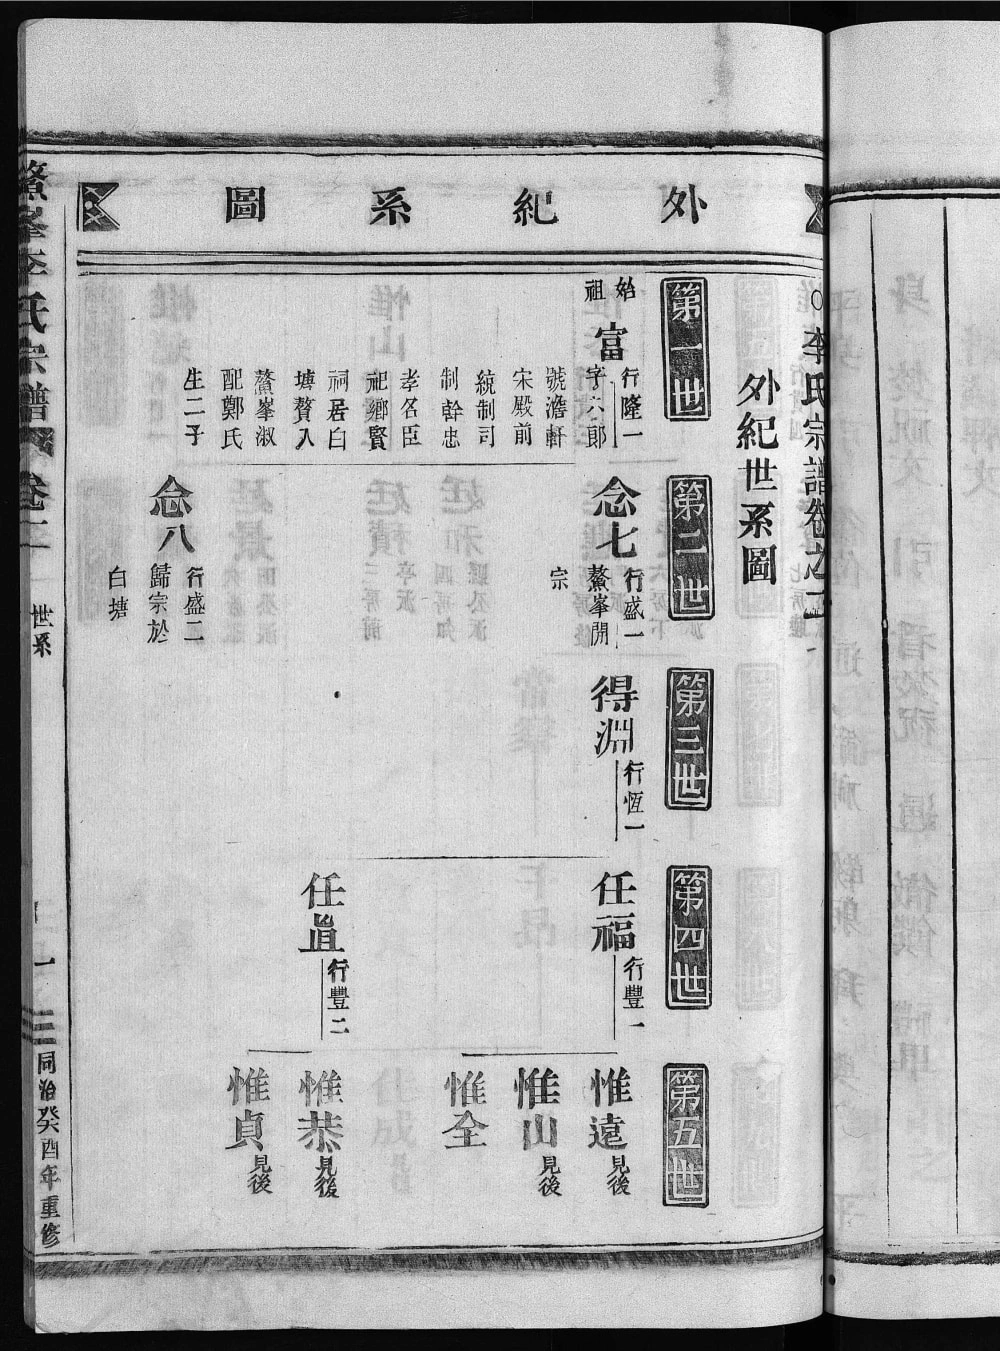 外紀系圖
李氏宗譜卷之一
外紀世系圖
第一世
始祖
富
行隆一
字六郎
號澹軒
宋殿前
統制司
制幹忠
孝名臣
祀鄉賢
祠居白
塘贅入
鰲峯淑
配鄭氏
生二子
第二世
念七
行盛一
鰲峯開
宗
念八
行盛二
歸宗於
白塘
第三世
得淵
行恆一
第四世
任福
行豐一
任眞
行豐二
第五世
惟遠
見後
惟山
見後
惟全
惟恭
見後
惟貞
見後
鰲峯李氏宗譜
世系
一
同治癸酉年重修